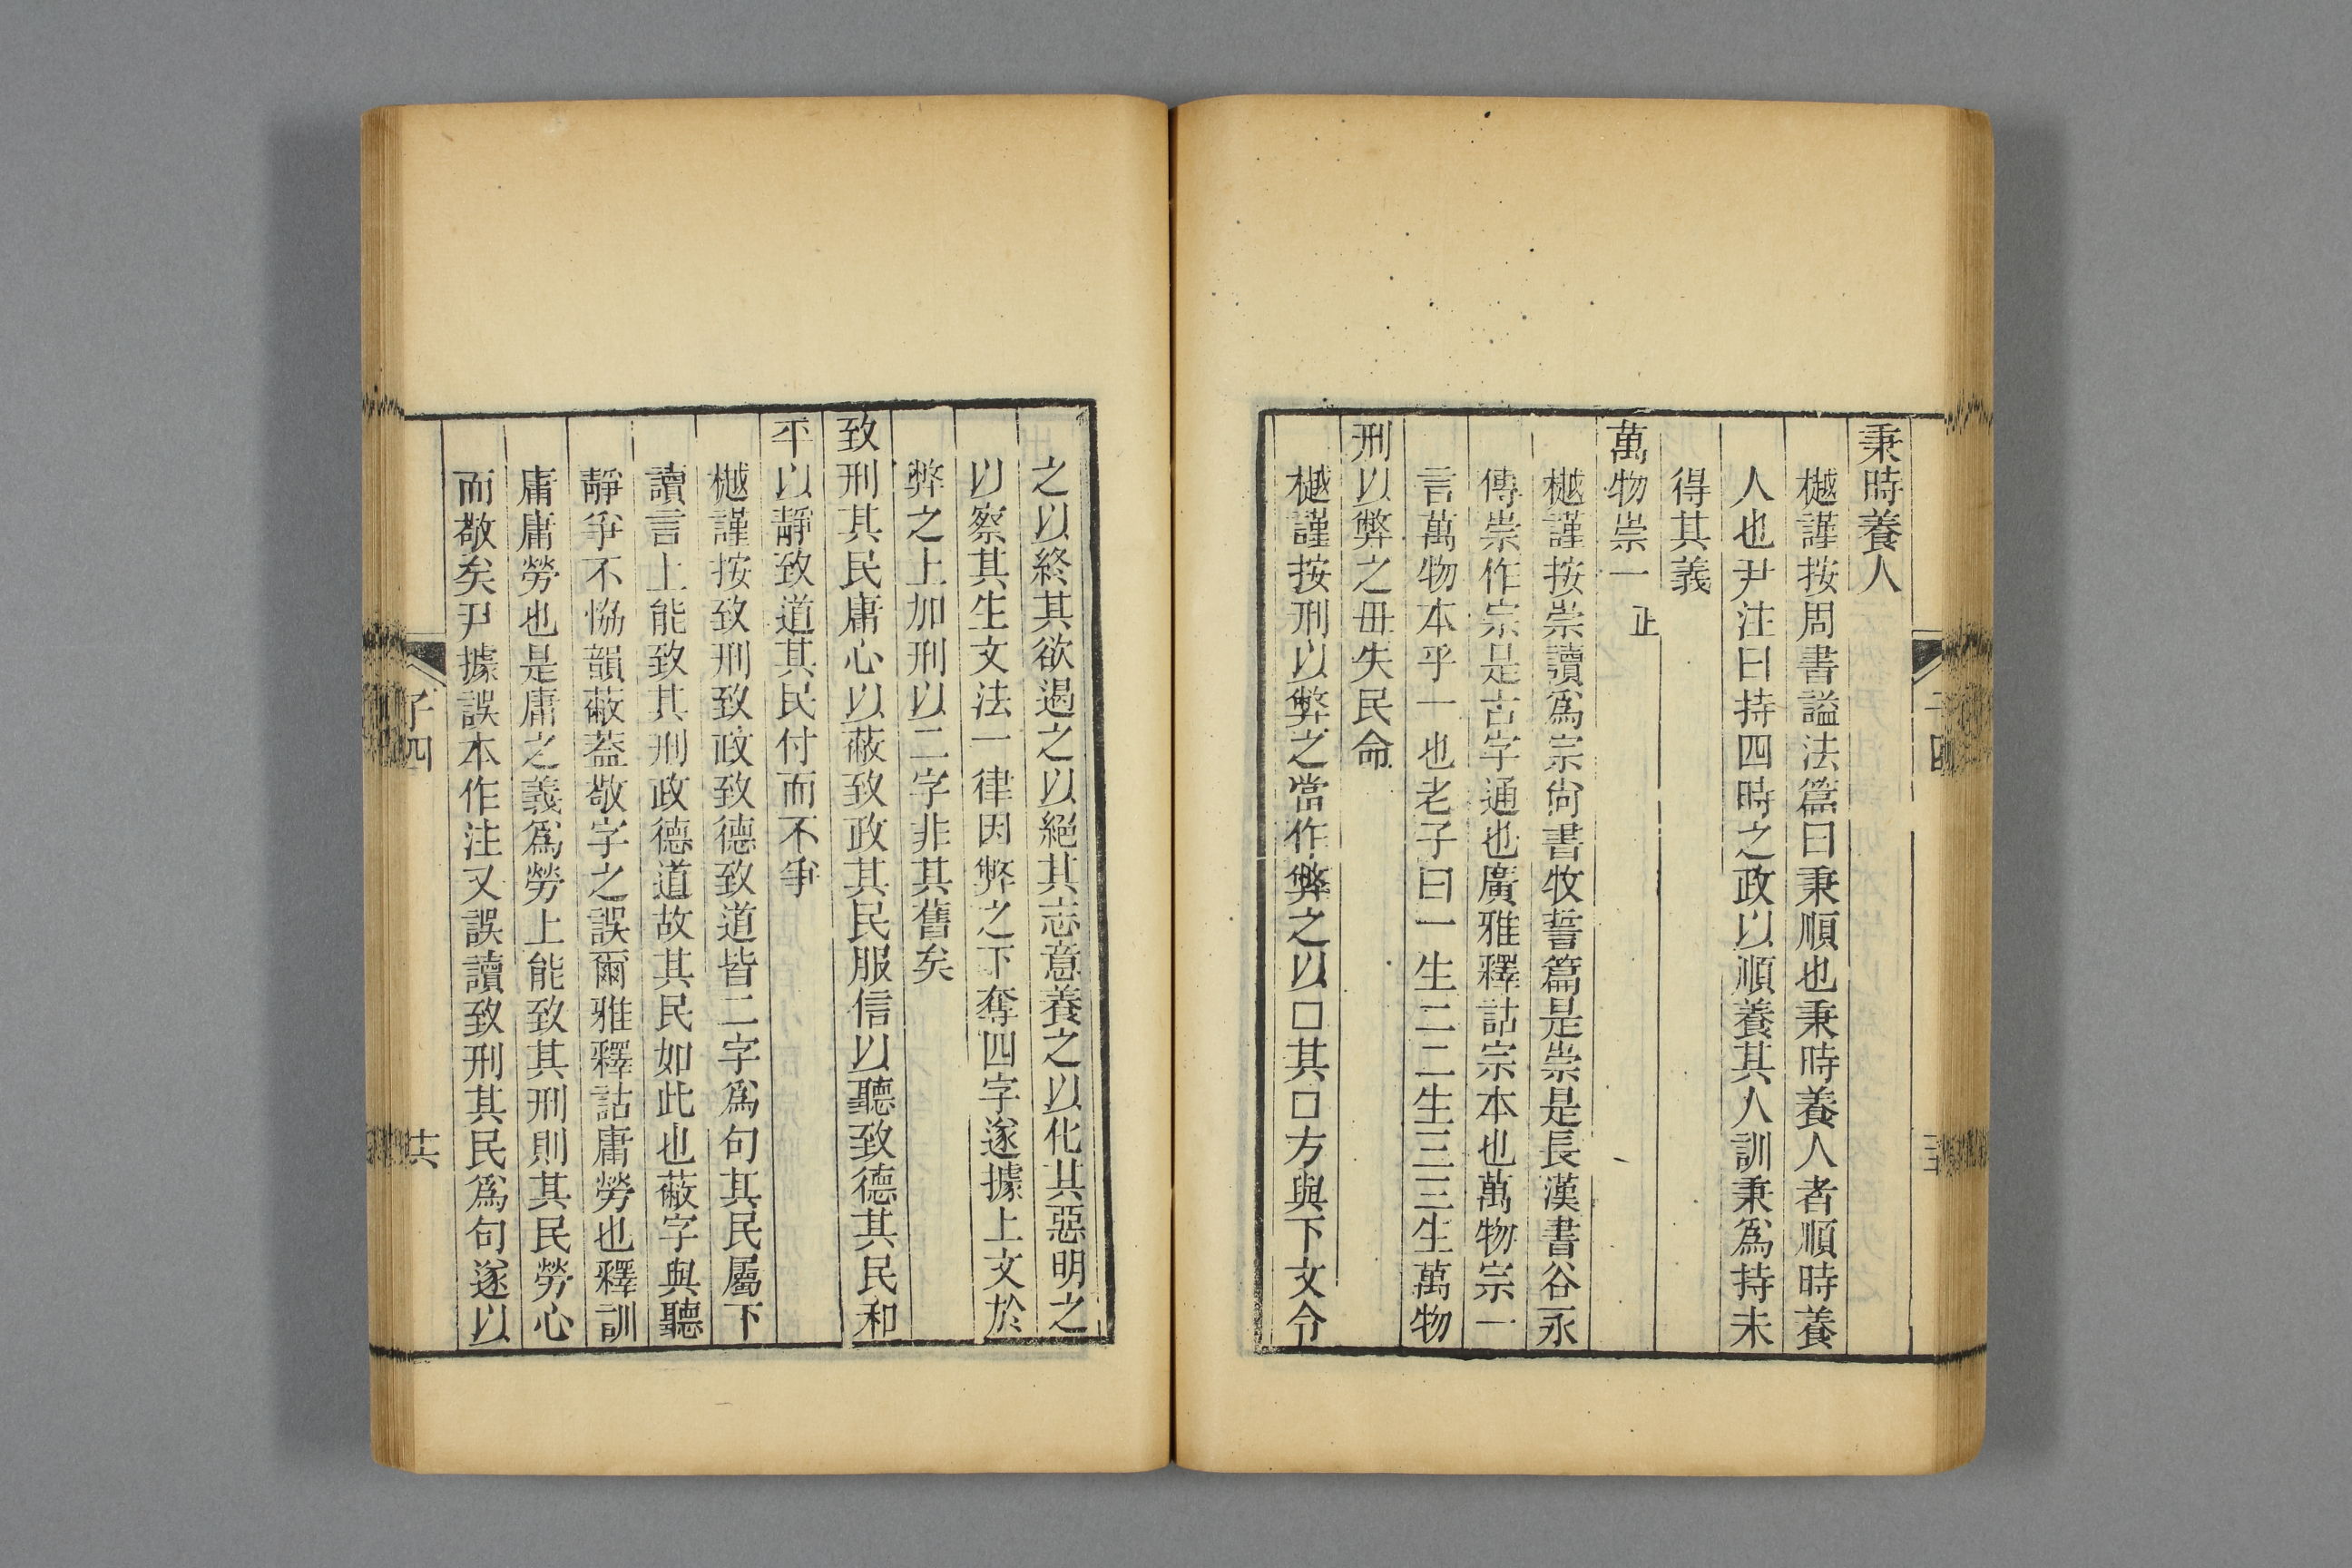 秉時養人
樾謹按周書謚法篇曰秉順也秉時養人者順時養
人也尹注曰持四時之政以順養其人訓秉爲持未
得其義
萬物崇一 正
樾謹按崇讀爲宗尙書牧誓篇是崇是長漢書谷永
傳崇作宗是古字通也廣雅釋詁宗本也萬物宗一
言萬物本乎一也老子曰一生二二生三三生萬物
刑以弊之毋失民命
樾謹按刑以弊之當作弊之以□其□方與下文令
之以終其欲遏之以絕其志意養之以化其惡明之
以察其生文法一律因弊之下奪四字遂據上文於
弊之上加刑以二字非其舊矣
致刑其民庸心以蔽致政其民服信以聽致德其民和
平以靜致道其民付而不爭
樾謹按致刑致政致德致道皆二字爲句其民屬下
讀言上能致其刑政德道故其民如此也蔽字與聽
靜爭不恊韻蔽葢敬字之誤爾雅釋詁庸勞也釋訓
庸庸勞也是庸之義爲勞上能致其刑則其民勞心
而敬矣尹據誤本作注又誤讀致刑其民爲句遂以
子四
共